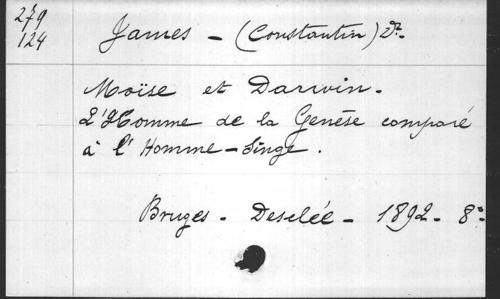 279
124
James - (Constantin) Dr.
Moïse et Darwin.
L'Homme de la Genèse comparé
à l'Homme-Singe.
Bruges - Desclée - 1892 - 8º